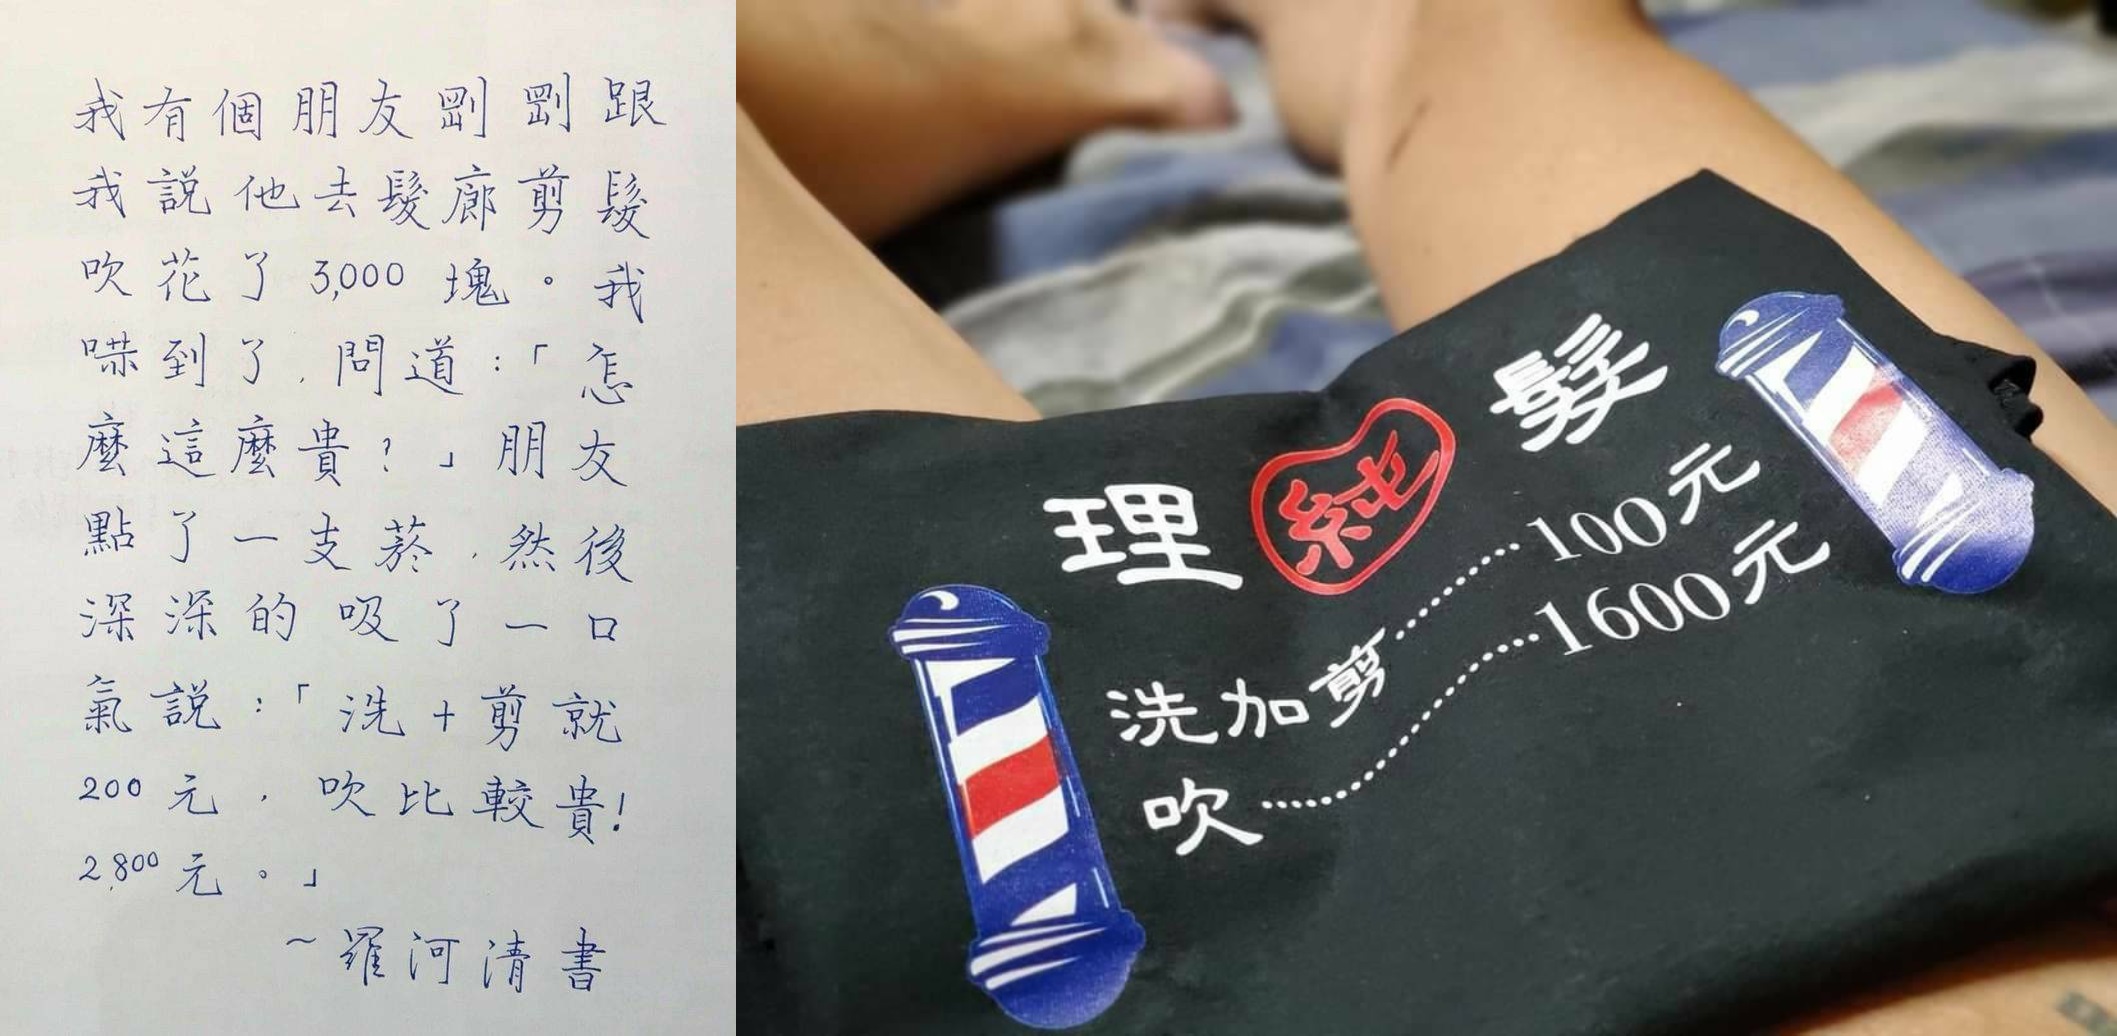 我有個朋友剛剛跟
我說他去髮廊剪髮
吹花了3,000塊。我
嚇到了,問道:「怎
麼這麼貴?」朋友
點了一支菸,然後
深深的吸了一口
氣說:「洗+剪就
200元,吹比較貴!
2,800元。」
~羅河清書
理純髮
洗加剪……100元
吹……1600元